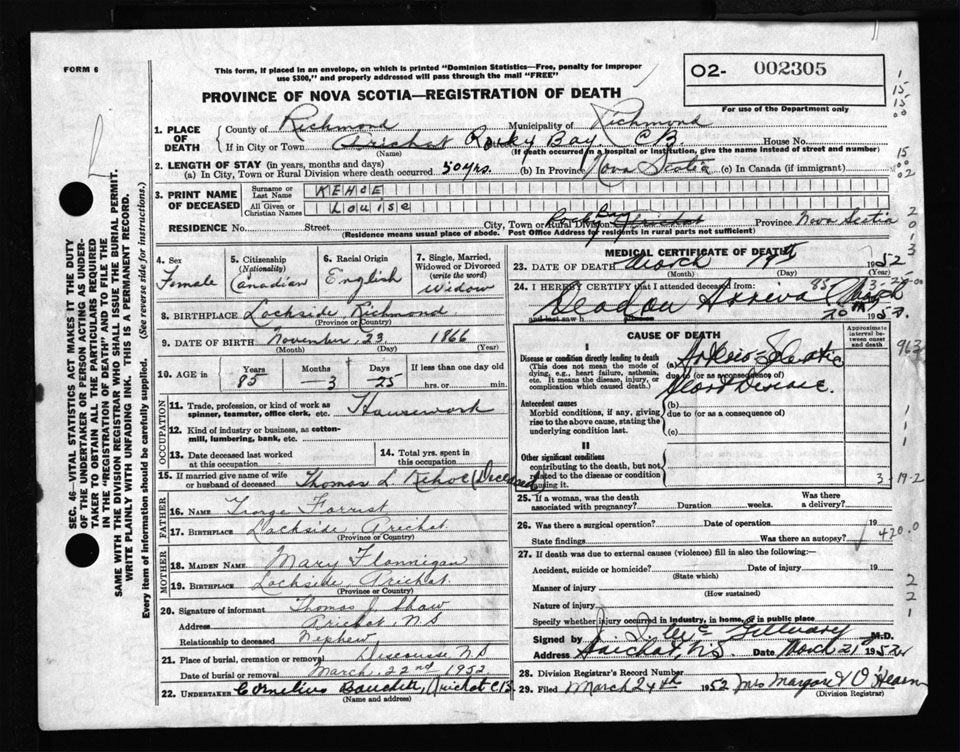 FORM 6
This form, if placed in an envelope, on which is printed "Dominion Statistics—Free, penalty for improper
use $300," and properly addressed will pass through the mail "FREE"
O2- 002305
For use of the Department only
PROVINCE OF NOVA SCOTIA—REGISTRATION OF DEATH
1. PLACE OF DEATH
County of Richmond Municipality of Richmond
If in City or Town Arichat Rocky Bay. C.B. House No.
(Name) (If death occurred in a hospital or institution, give the name instead of street and number)
2. LENGTH OF STAY (in years, months and days)
(a) In City, Town or Rural Division where death occurred 50 yrs. (b) In Province Nova Scotia (c) In Canada (if immigrant)
3. PRINT NAME OF DECEASED
Surname or Last Name KEHOE
All Given or Christian Names Louise
RESIDENCE No. Street City, Town or Rural Division Rocky Bay Arichat Province Nova Scotia
(Residence means usual place of abode. Post Office Address for residents in rural parts not sufficient)
4. Sex Female
5. Citizenship (Nationality) Canadian
6. Racial Origin English
7. Single, Married, Widowed or Divorced (write the word) Widow
8. BIRTHPLACE Lochside, Richmond
(Province or Country)
9. DATE OF BIRTH November 23 1866
(Month) (Day) (Year)
10. AGE in Years 85 Months 3 Days 25 If less than one day old
hrs. or min.
OCCUPATION
11. Trade, profession, or kind of work as
spinner, teamster, office clerk, etc. Housework
12. Kind of industry or business, as cotton-
mill, lumbering, bank, etc.
13. Date deceased last worked
at this occupation
14. Total yrs. spent in
this occupation
15. If married give name of wife
or husband of deceased Thomas L. Kehoe (Deceased)
FATHER
16. NAME George Forrist
17. BIRTHPLACE Lochside Arichat
(Province or Country)
MOTHER
18. MAIDEN NAME Mary Flannigan
19. BIRTHPLACE Lochside, Arichat.
(Province or Country)
20. Signature of informant Thomas J. Shaw
Address Arichat, N.S
Relationship to deceased Nephew
21. Place of burial, cremation or removal Discouse N.S
Date of burial or removal March 22nd 1952
22. UNDERTAKER Cornelius Arichat C.B.
(Name and address)
MEDICAL CERTIFICATE OF DEATH
23. DATE OF DEATH March 19th 1952
(Month) (Day) (Year)
24. I HEREBY CERTIFY that I attended deceased from:
Dead on Arrival March
and last saw h 20th 1952.
CAUSE OF DEATH
Approximate interval between onset and death
I
Disease or condition directly leading to death
(This does not mean the mode of
dying, e.g., heart failure, asthenia,
etc. It means the disease, injury, or
complication which caused death.)
(a)
due to (or as a consequence of)
Heart Disease
Antecedent causes
Morbid conditions, if any, giving
rise to the above cause, stating the
underlying condition last.
(b)
due to (or as a consequence of)
(c)
II
Other significant conditions
contributing to the death, but not
related to the disease or condition
causing it.
3-19-2
25. If a woman, was the death
associated with pregnancy? Duration weeks. Was there
a delivery?
26. Was there a surgical operation? Date of operation 19
State findings Was there an autopsy?
420.0
27. If death was due to external causes (violence) fill in also the following:—
Accident, suicide or homicide? Date of injury 19
(State which)
Manner of injury
(How sustained)
Nature of injury
Specify whether injury occurred in industry, in home, or in public place
Signed by M.D.
Address Arichat N.S. Date March 21 1952
28. Division Registrar's Record Number
29. Filed March 24th 1952 Mrs Margaret O'Hearn
(Division Registrar)
SEC. 46—VITAL STATISTICS ACT MAKES IT THE DUTY
OF THE UNDERTAKER OR PERSON ACTING AS UNDER-
TAKER TO OBTAIN ALL THE PARTICULARS REQUIRED
IN THE "REGISTRATION OF DEATH" AND TO FILE THE
SAME WITH THE DIVISION REGISTRAR WHO SHALL ISSUE THE BURIAL PERMIT.
WRITE PLAINLY WITH UNFADING INK. THIS IS A PERMANENT RECORD.
Every item of information should be carefully supplied. (See reverse side for instructions.)